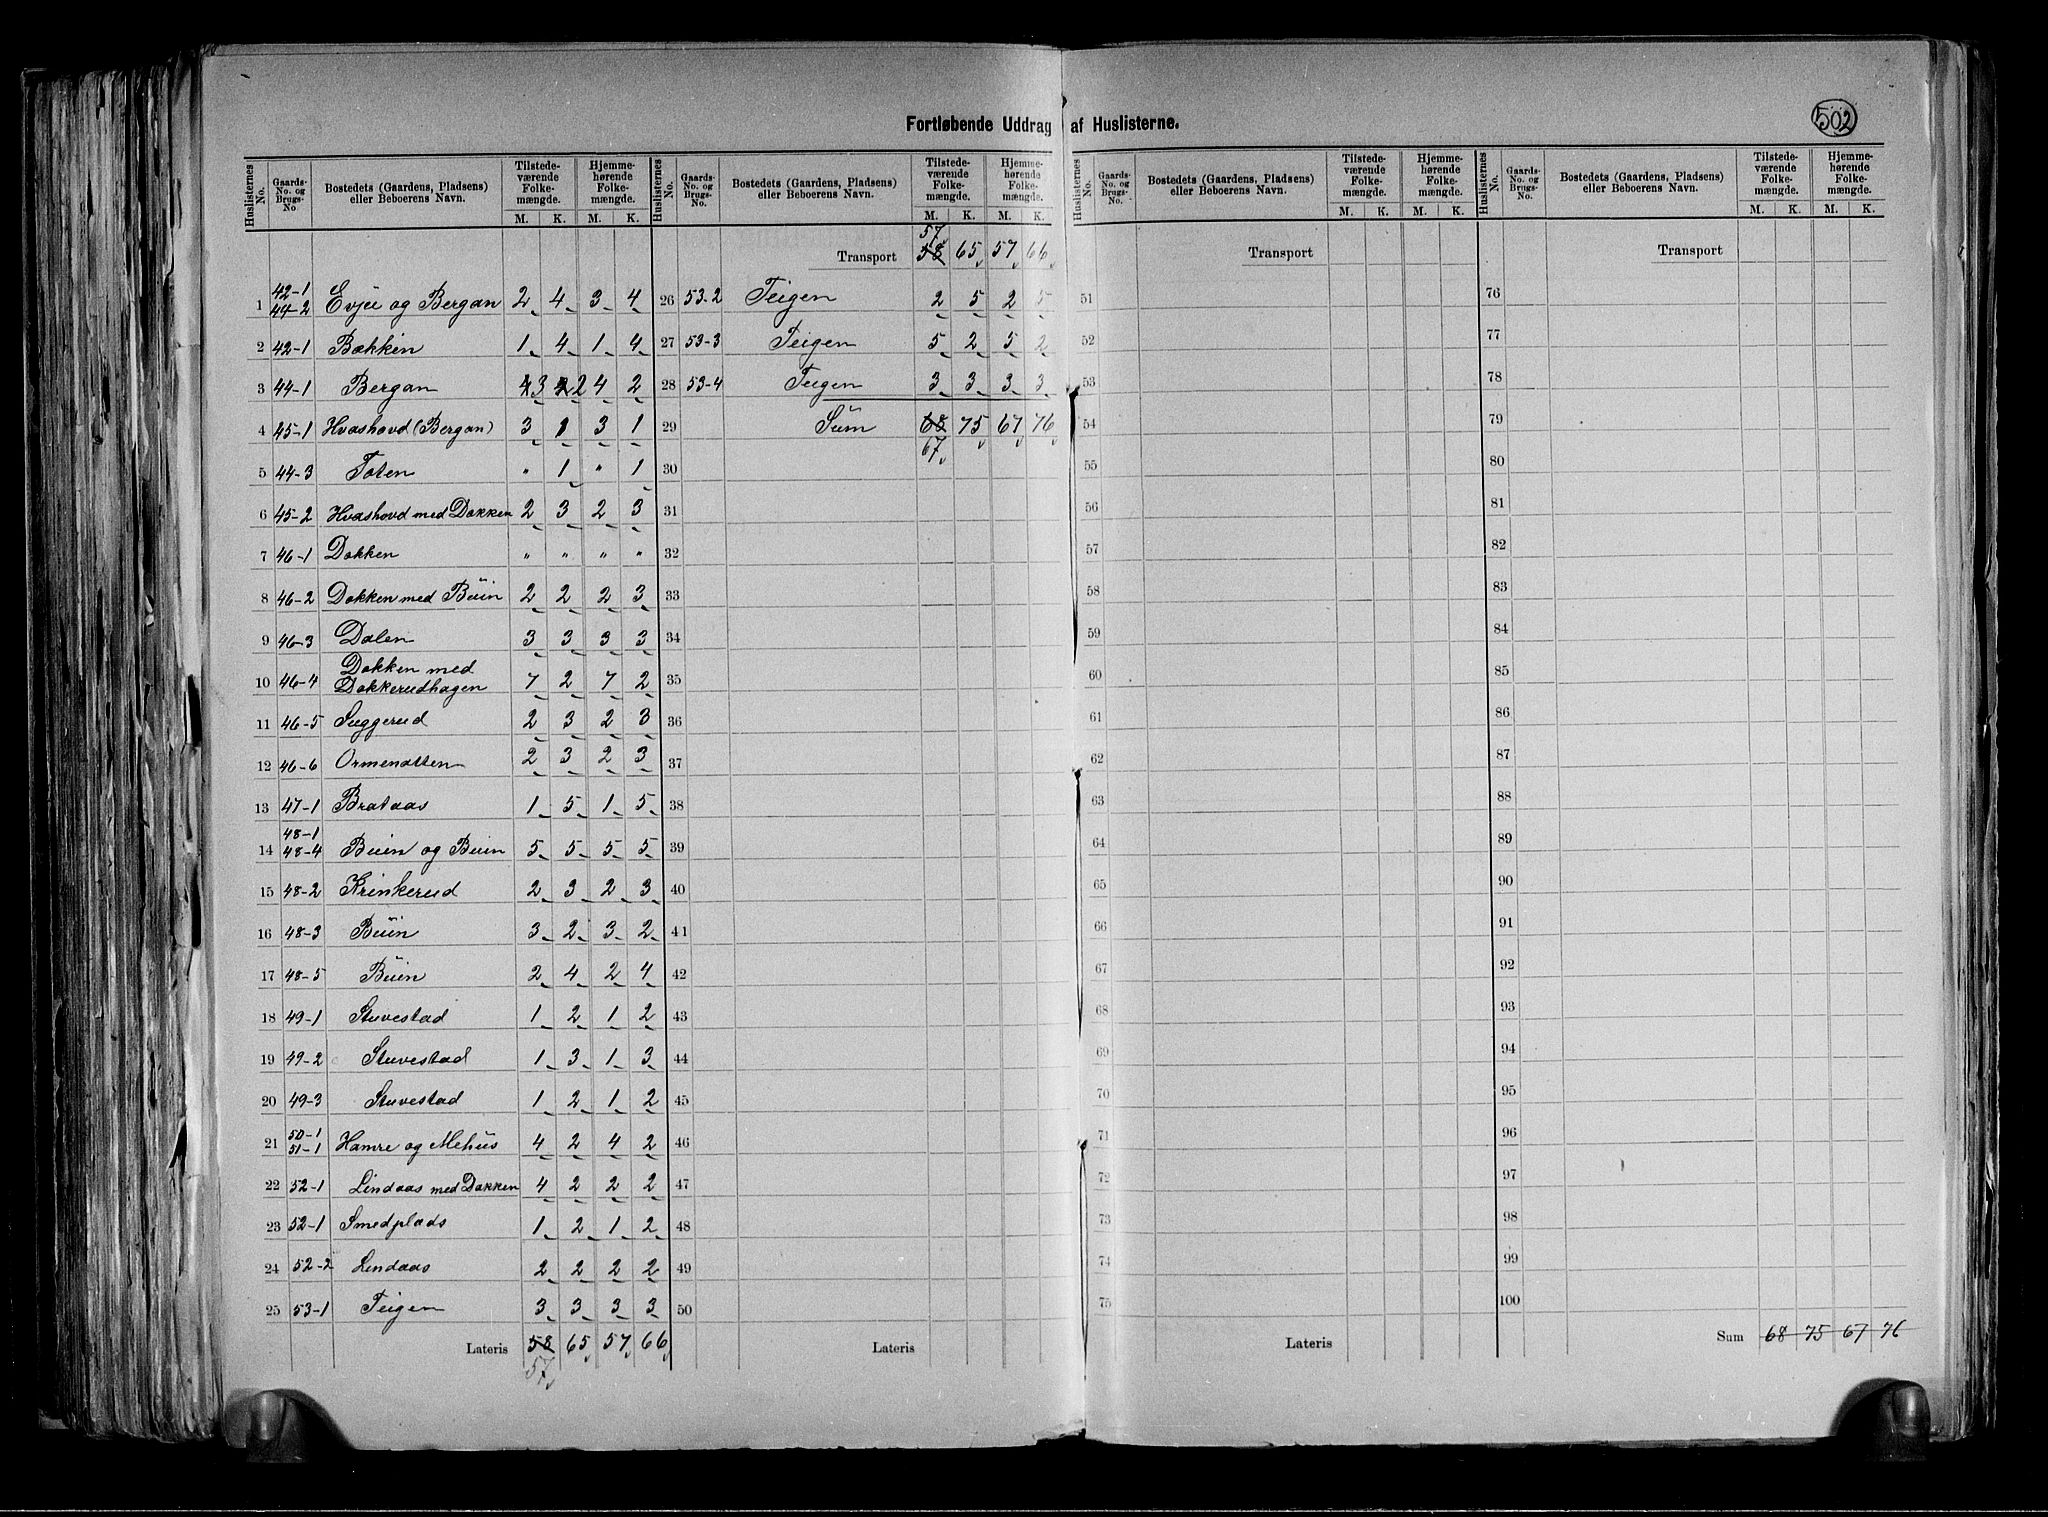 502
Fortløbende Uddrag af Huslisterne.
Huslisternes No. | Gaards-No. og Brugs-No. | Bostedets (Gaardens, Pladsens) eller Beboerens Navn. | Tilstedeværende Folkemængde. M. K. | Hjemmehørende Folkemængde. M. K.
1 | 42-1 44-2 | Evju og Bergan | 2 | 4 | 3 | 4
2 | 42-1 | Bakken | 1 | 4 | 1 | 4
3 | 44-1 | Bergan | 4 3 | 2 2 | 4 | 2
4 | 45-1 | Hvashovd (Bergan) | 3 | 1 | 3 | 1
5 | 44-3 | Toten | " | 1 | " | 1
6 | 45-2 | Hvashovd med Dokken | 2 | 3 | 2 | 3
7 | 46-1 | Dokken | " | " | " | "
8 | 46-2 | Dokken med Büin | 2 | 2 | 2 | 3
9 | 46-3 | Dalen | 3 | 3 | 3 | 3
10 | 46-4 | Dokken med Dokkerudhagen | 7 | 2 | 7 | 2
11 | 46-5 | Suggerud | 2 | 3 | 2 | 3
12 | 46-6 | Ormenatten | 2 | 3 | 2 | 3
13 | 47-1 | Brataas | 1 | 5 | 1 | 5
14 | 48-1 48-4 | Buin og Buin | 5 | 5 | 5 | 5
15 | 48-2 | Krinkerud | 2 | 3 | 2 | 3
16 | 48-3 | Büin | 3 | 2 | 3 | 2
17 | 48-5 | Büin | 2 | 4 | 2 | 4
18 | 49-1 | Stuvestad | 1 | 2 | 1 | 2
19 | 49-2 | Stuvestad | 1 | 3 | 1 | 3
20 | 49-3 | Stuvestad | 1 | 2 | 1 | 2
21 | 50-1 51-1 | Hamre og Mehus | 4 | 2 | 4 | 2
22 | 52-1 | Lindaas med Dokken | 4 | 2 | 2 | 2
23 | 52-1 | Smedplads | 1 | 2 | 1 | 2
24 | 52-2 | Lindaas | 2 | 2 | 2 | 2
25 | 53-1 | Teigen | 3 | 3 | 3 | 3
Lateris | 58 | 65 | 57 | 66
57
Huslisternes No. | Gaards-No. og Brugs-No. | Bostedets (Gaardens, Pladsens) eller Beboerens Navn. | Tilstedeværende Folkemængde. M. K. | Hjemmehørende Folkemængde. M. K.
57
Transport | 58 | 65 | 57 | 66
26 | 53-2 | Teigen | 2 | 5 | 2 | 5
27 | 53-3 | Teigen | 5 | 2 | 5 | 2
28 | 53-4 | Teigen | 3 | 3 | 3 | 3
29 | Sum | 68 | 75 | 67 | 76
67
30
31
32
33
34
35
36
37
38
39
40
41
42
43
44
45
46
47
48
49
50
Lateris
Huslisternes No. | Gaards-No. og Brugs-No. | Bostedets (Gaardens, Pladsens) eller Beboerens Navn. | Tilstedeværende Folkemængde. M. K. | Hjemmehørende Folkemængde. M. K.
Transport
51
52
53
54
55
56
57
58
59
60
61
62
63
64
65
66
67
68
69
70
71
72
73
74
75
Lateris
Huslisternes No. | Gaards-No. og Brugs-No. | Bostedets (Gaardens, Pladsens) eller Beboerens Navn. | Tilstedeværende Folkemængde. M. K. | Hjemmehørende Folkemængde. M. K.
Transport
76
77
78
79
80
81
82
83
84
85
86
87
88
89
90
91
92
93
94
95
96
97
98
99
100
Sum | 68 | 75 | 67 | 76